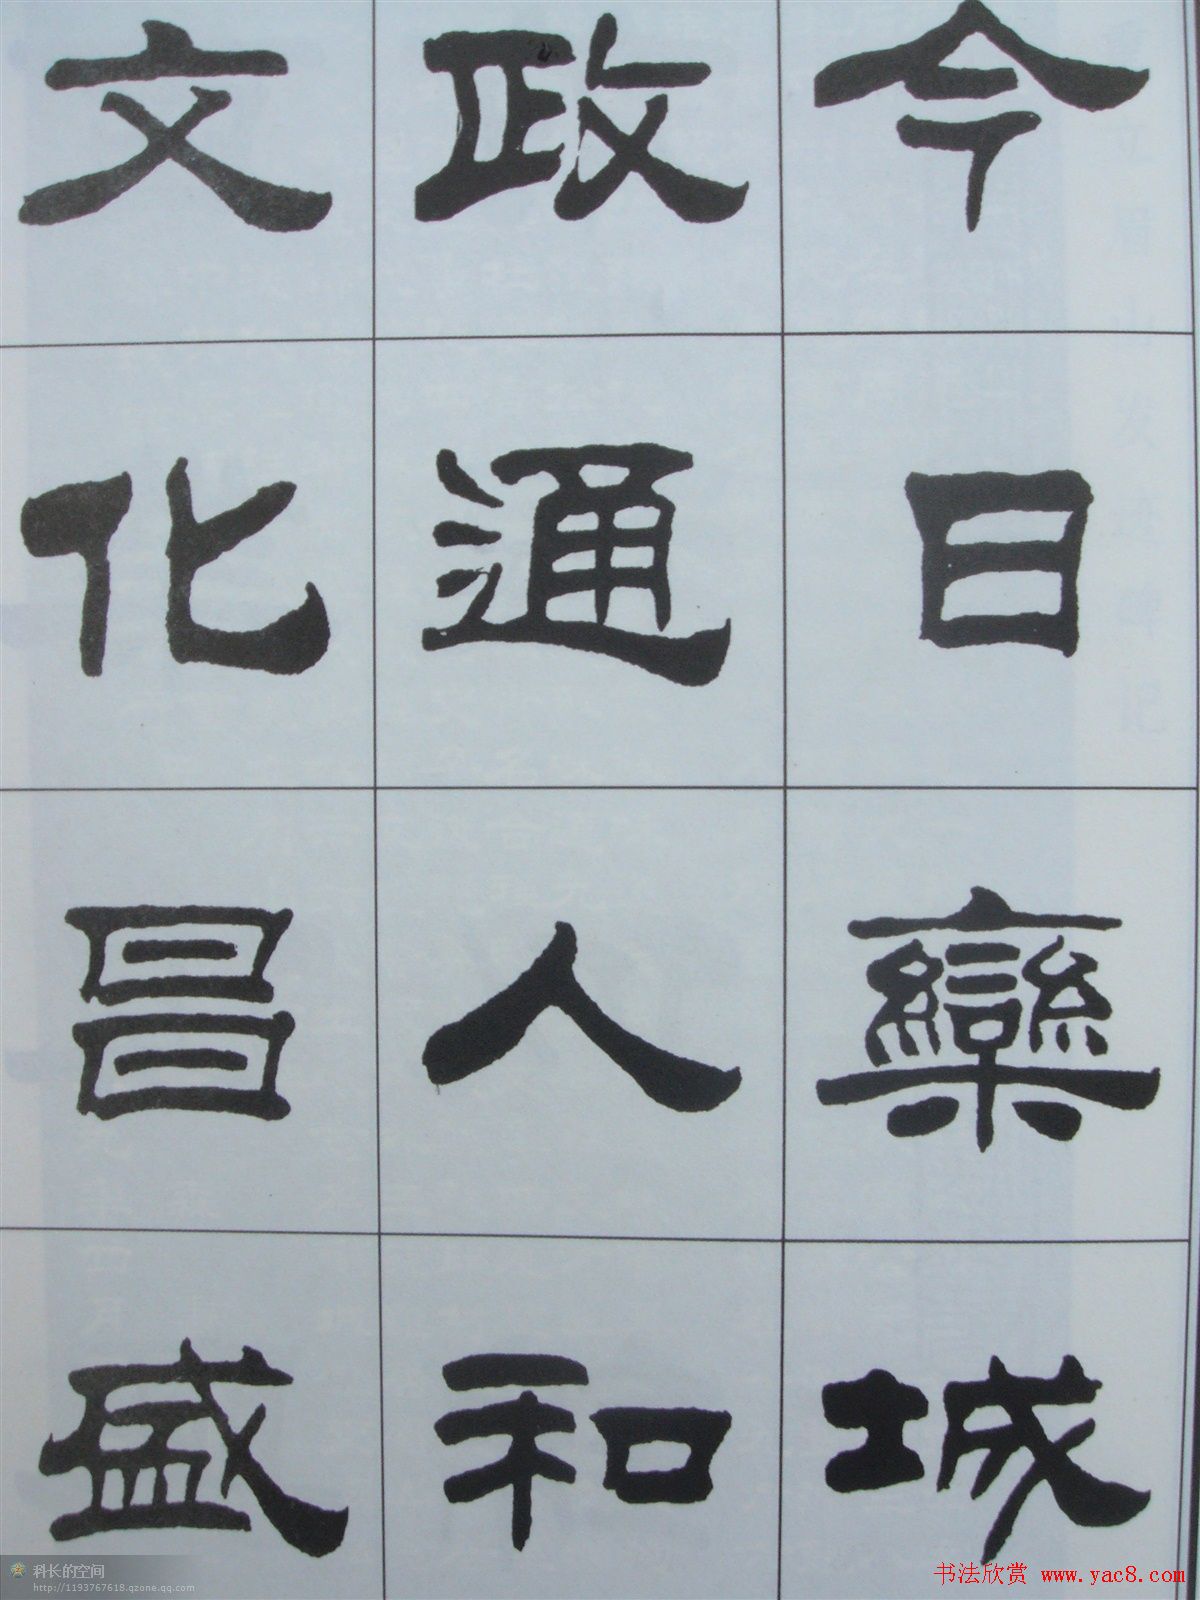 今日欒城
政通人和
文化昌盛
科长的空间
http://1193767618.qzone.qq.com
书法欣赏 www.yac8.com